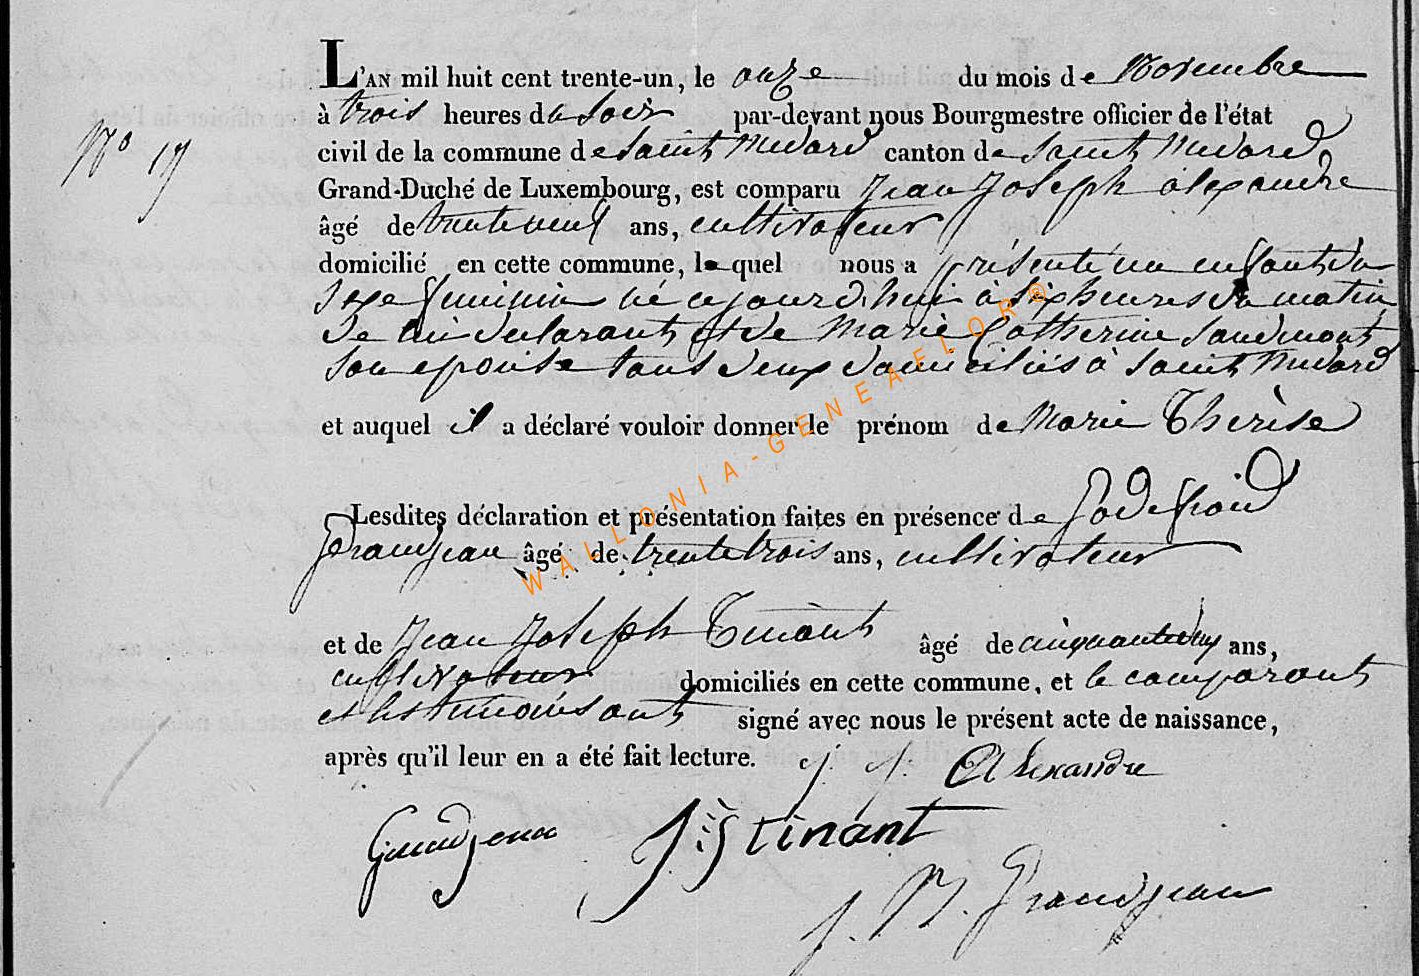 L'AN mil huit cent trente-un, le onze du mois de Novembre
à trois heures du soir par-devant nous Bourgmestre officier de l'état
civil de la commune de Saint Medard canton de Saint Medard
N° 17
Grand-Duché de Luxembourg, est comparu Jean Joseph alexandre
âgé de trente neuf ans, cultivateur
domicilié en cette commune, lequel nous a présenté un enfant du
sexe feminin né cejourd'hui à six heures du matin
de lui declarant et de Marie Catherine Sandmont
son epouse tous deux domiciliés à Saint Medard
et auquel il a déclaré vouloir donner le prénom de Marie Thérèse
Lesdites déclaration et présentation faites en présence de Godefroid
Grandjean âgé de trente trois ans, cultivateur
et de Jean Joseph Tinant âgé de ans,
cultivateur domiciliés en cette commune, et le comparant
et les temoins ont signé avec nous le présent acte de naissance,
après qu'il leur en a été fait lecture. j. j. Alexandre
Grandjean J:J tinant
J. N. Grandjean
WALLONIA-GENEAFLOR®